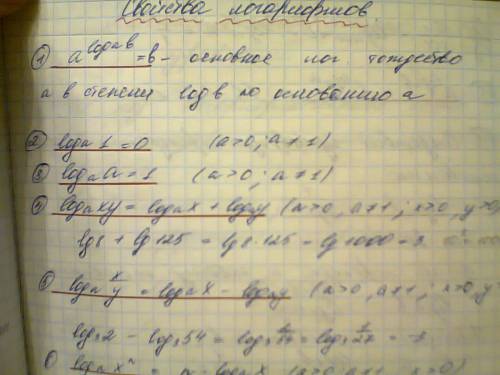 Свойства логарифмов.
① a^(log_a b) = b - основное лог тождество
a в степени log b по основанию a
② log_a 1 = 0 (a>0; a≠1)
③ log_a a = 1 (a>0; a≠1)
④ log_a xy = log_a x + log_a y (a>0, a≠1; x>0, y>0
lg 8 + lg 125 = lg 8·125 = lg 1000 = 3.
⑤ log_a x/y = log_a x - log_a y (a>0, a≠1; x>0, y
log_3 2 - log_3 54 = log_3 2/54 = log_3 1/27 = -3
log_a xⁿ = n log_a x (a>0, a≠1, x>0)